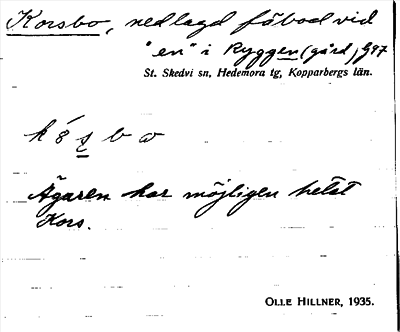 Korsbo, nedlagd fäbod vid
"en" i Ryggen (gård) G97
St. Skedvi sn, Hedemora tg, Kopparbergs län.
Ägaren har möjligen hetat
Kors.
OLLE HILLNER, 1935.